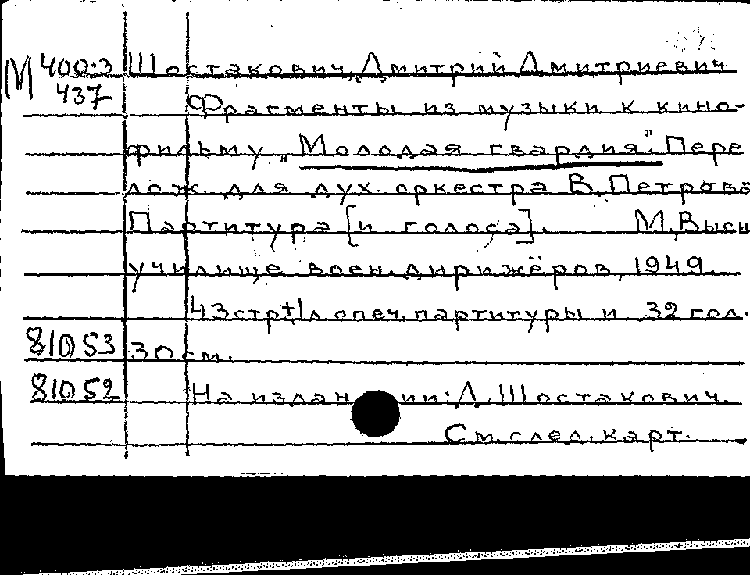 М 400:3 Шостакович, Дмитрий Дмитриевич
437 Фрагменты из музыки к кино-
фильму „Молодая гвардия". Пере
лож. для дух. оркестра В. Петрова
Партитура [и голоса]. М, Высш
училище воен. дирижёров, 1949.
43 стр+1 л опеч. партитуры и 32 гол.
81053 30 см.
81052 На издан ии: Д. Шостакович.
См. след. карт.